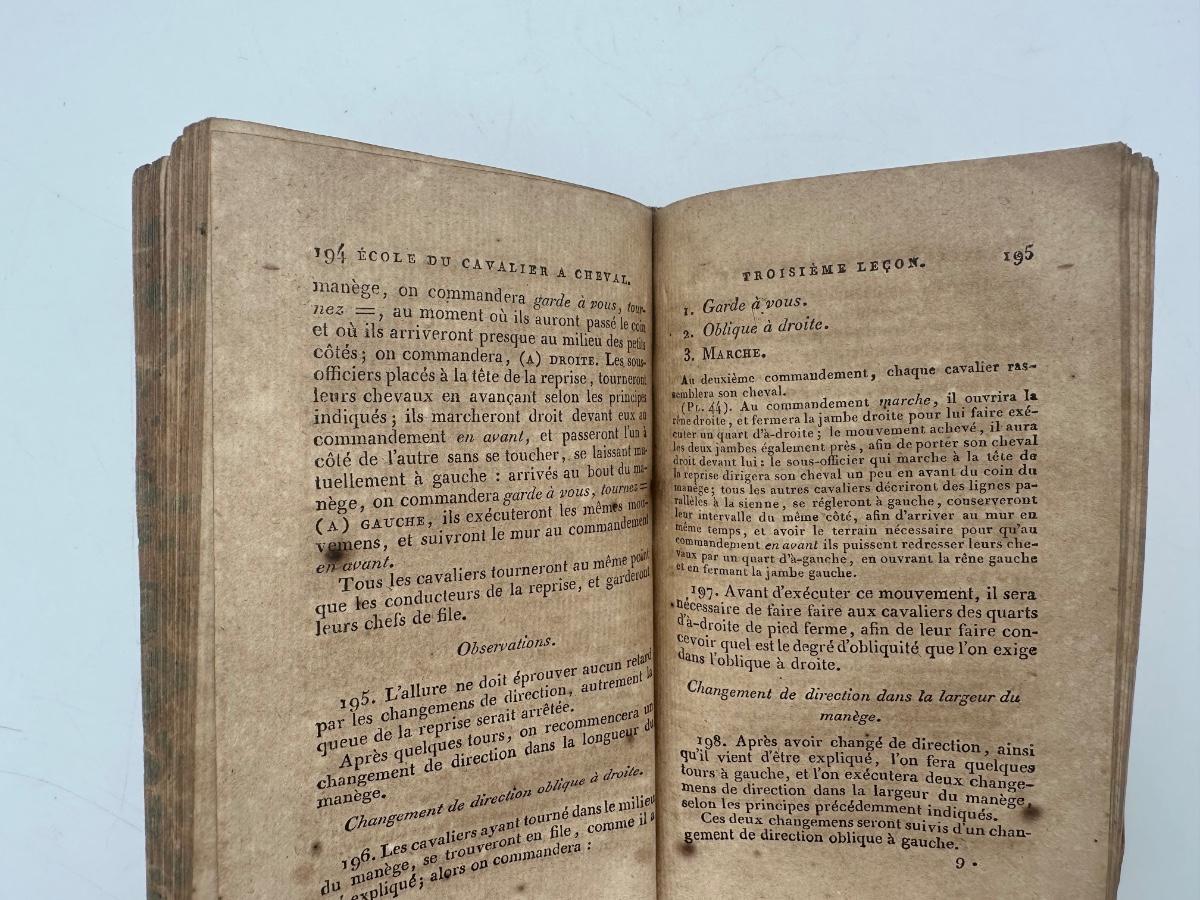 194 ÉCOLE DU CAVALIER A CHEVAL.
manège, on commandera garde à vous, tour-
nez =, au moment où ils auront passé le coin
et où ils arriveront presque au milieu des petits
côtés; on commandera, (A) DROITE. Les sous-
officiers placés à la tête de la reprise, tourneront
leurs chevaux en avançant selon les principes
indiqués; ils marcheront droit devant eux au
commandement en avant, et passeront l'un à
côté de l'autre sans se toucher, se laissant mu-
tuellement à gauche : arrivés au bout du ma-
nège, on commandera garde à vous, tournez =
(A) GAUCHE, ils exécuteront les mêmes mou-
vemens, et suivront le mur au commandement
en avant.
Tous les cavaliers tourneront au même point
que les conducteurs de la reprise, et garderont
leurs chefs de file.
Observations.
195. L'allure ne doit éprouver aucun retard
par les changemens de direction, autrement la
queue de la reprise serait arrêtée.
Après quelques tours, on recommencera un
changement de direction dans la longueur du
manège.
Changement de direction oblique à droite.
196. Les cavaliers ayant tourné dans le milieu
du manège, se trouveront en file, comme il a
expliqué; alors on commandera :
TROISIÈME LEÇON. 195
1. Garde à vous.
2. Oblique à droite.
3. MARCHE.
Au deuxième commandement, chaque cavalier ras-
semblera son cheval.
(PL. 44). Au commandement marche, il ouvrira la
rène droite, et fermera la jambe droite pour lui faire exé-
cuter un quart d'à-droite; le mouvement achevé, il aura
les deux jambes également près, afin de porter son cheval
droit devant lui : le sous-officier qui marche à la tête de
la reprise dirigera son cheval un peu en avant du coin du
manège; tous les autres cavaliers décriront des lignes pa-
rallèles à la sienne, se régleront à gauche, conserveront
leur intervalle du même côté, afin d'arriver au mur en
même temps, et avoir le terrain nécessaire pour qu'au
commandement en avant ils puissent redresser leurs che-
vaux par un quart d'à-gauche, en ouvrant la rêne gauche
et en fermant la jambe gauche.
197. Avant d'exécuter ce mouvement, il sera
nécessaire de faire faire aux cavaliers des quarts
d'à-droite de pied ferme, afin de leur faire con-
cevoir quel est le degré d'obliquité que l'on exige
dans l'oblique à droite.
Changement de direction dans la largeur du
manège.
198. Après avoir changé de direction, ainsi
qu'il vient d'être expliqué, l'on fera quelques
tours à gauche, et l'on exécutera deux change-
mens de direction dans la largeur du manège,
selon les principes précédemment indiqués.
Ces deux changemens seront suivis d'un chan-
gement de direction oblique à gauche.
9.